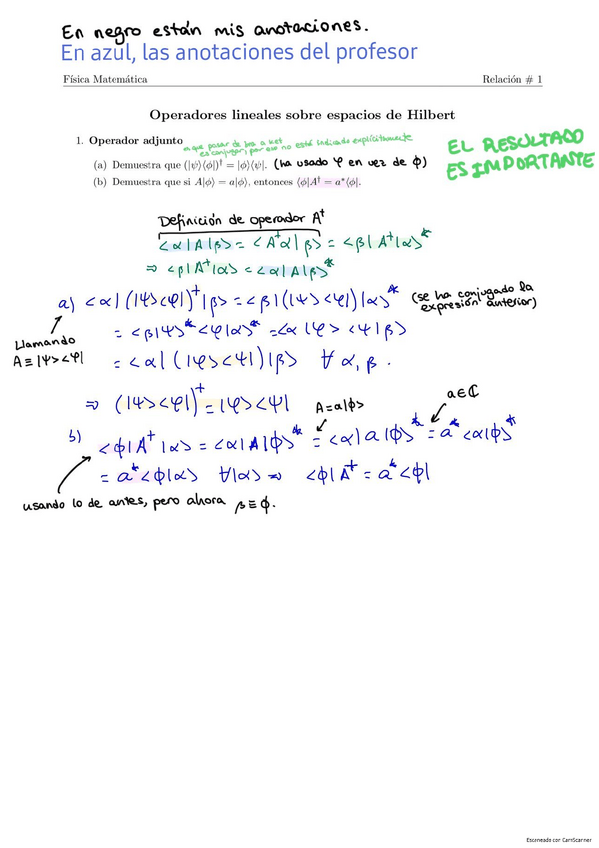 En negro están mis anotaciones.
En azul, las anotaciones del profesor
Física Matemática Relación # 1
Operadores lineales sobre espacios de Hilbert
1. Operador adjunto
→ que pasar de bra a ket
es conjugar, por eso no está indicado explícitamente
EL RESULTADO
ES IMPORTANTE
(a) Demuestra que (|ψ⟩⟨ϕ|)† = |ϕ⟩⟨ψ|. (ha usado φ en vez de ϕ)
(b) Demuestra que si A|ϕ⟩ = a|ϕ⟩, entonces ⟨ϕ|A† = a*⟨ϕ|.
Definición de operador A†
<α|A|β> = <A†α|β> = <β|A†|α>*
⇒ <β|A†|α> = <α|A|β>*
a) <α|(|ψ><φ|)†|β> = <β|(|ψ><φ|)|α>* (se ha conjugado la
expresión anterior)
= <β|ψ>*<φ|α>* = <α|φ><ψ|β>
Llamando
A ≡ |ψ><φ|
= <α|(|φ><ψ|)|β> ∀ α, β.
⇒ (|ψ><φ|)† = |φ><ψ|
A = a|ϕ>
a ∈ ℂ
b) <ϕ|A†|α> = <α|A|ϕ>* = <α|a|ϕ>* = a*<α|ϕ>*
= a*<ϕ|α> ∀|α> ⇒ <ϕ|A† = a*<ϕ|
usando lo de antes, pero ahora β ≡ ϕ.
Escaneado con CamScanner